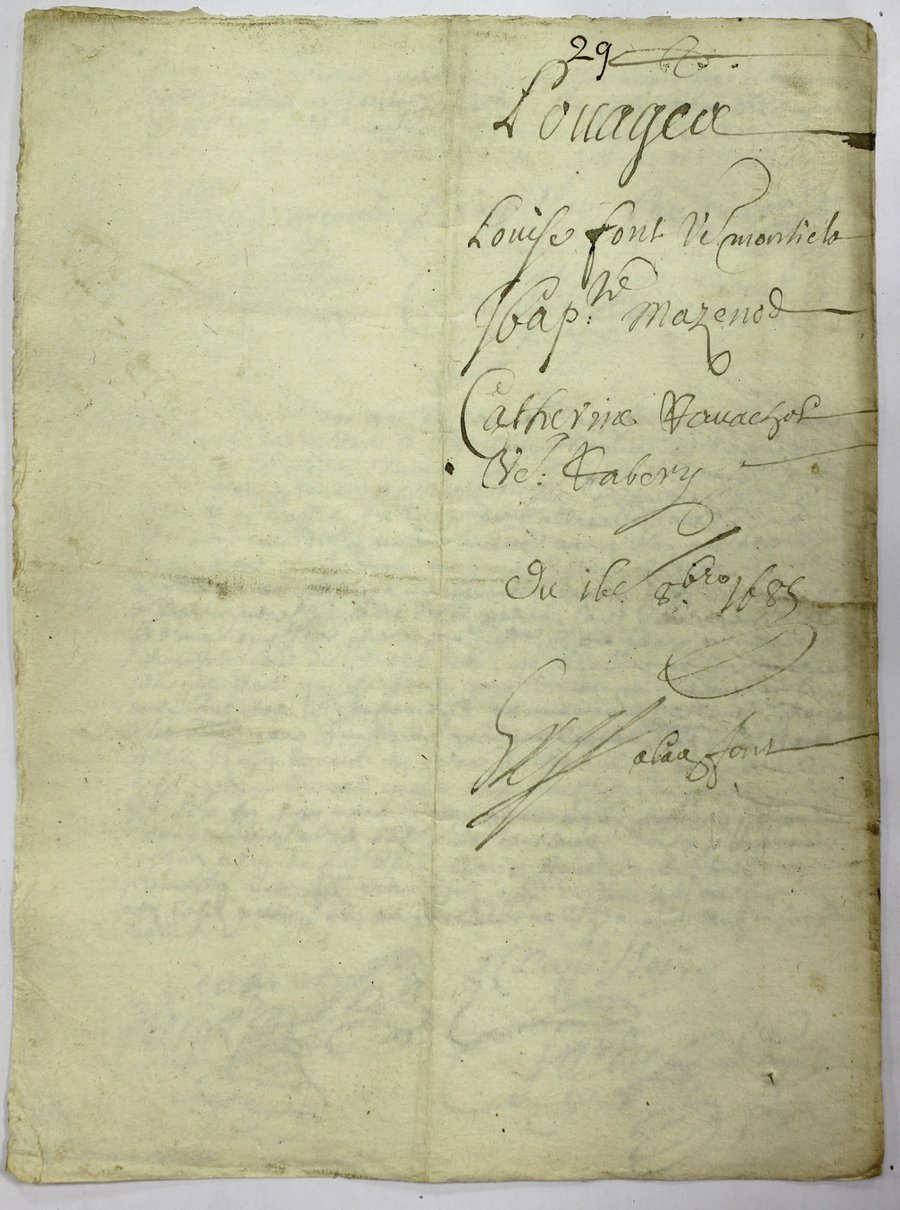 29
Louagea
Louise font Ve montielo
JBap:te Mazenod
Catherine Ravachol
Ve: Rabery
Du 16e 8:bre 1685
font